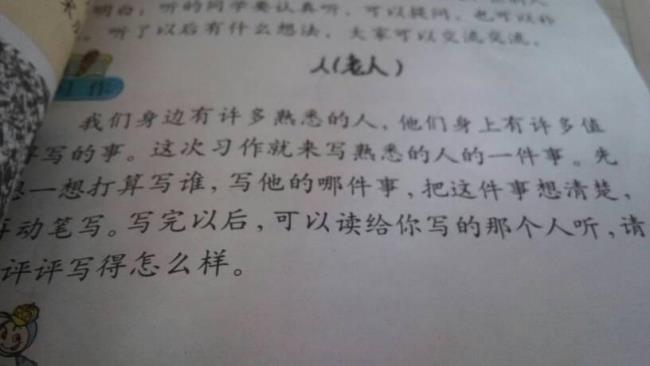 明白；听的同学要认真听，可以提问，也可以补
听了以后有什么想法，大家可以交流交流。
人(老人)
习作
我们身边有许多熟悉的人，他们身上有许多值
写的事。这次习作就来写熟悉的人的一件事。先
想一想打算写谁，写他的哪件事，把这件事想清楚，
再动笔写。写完以后，可以读给你写的那个人听，请
评评写得怎么样。